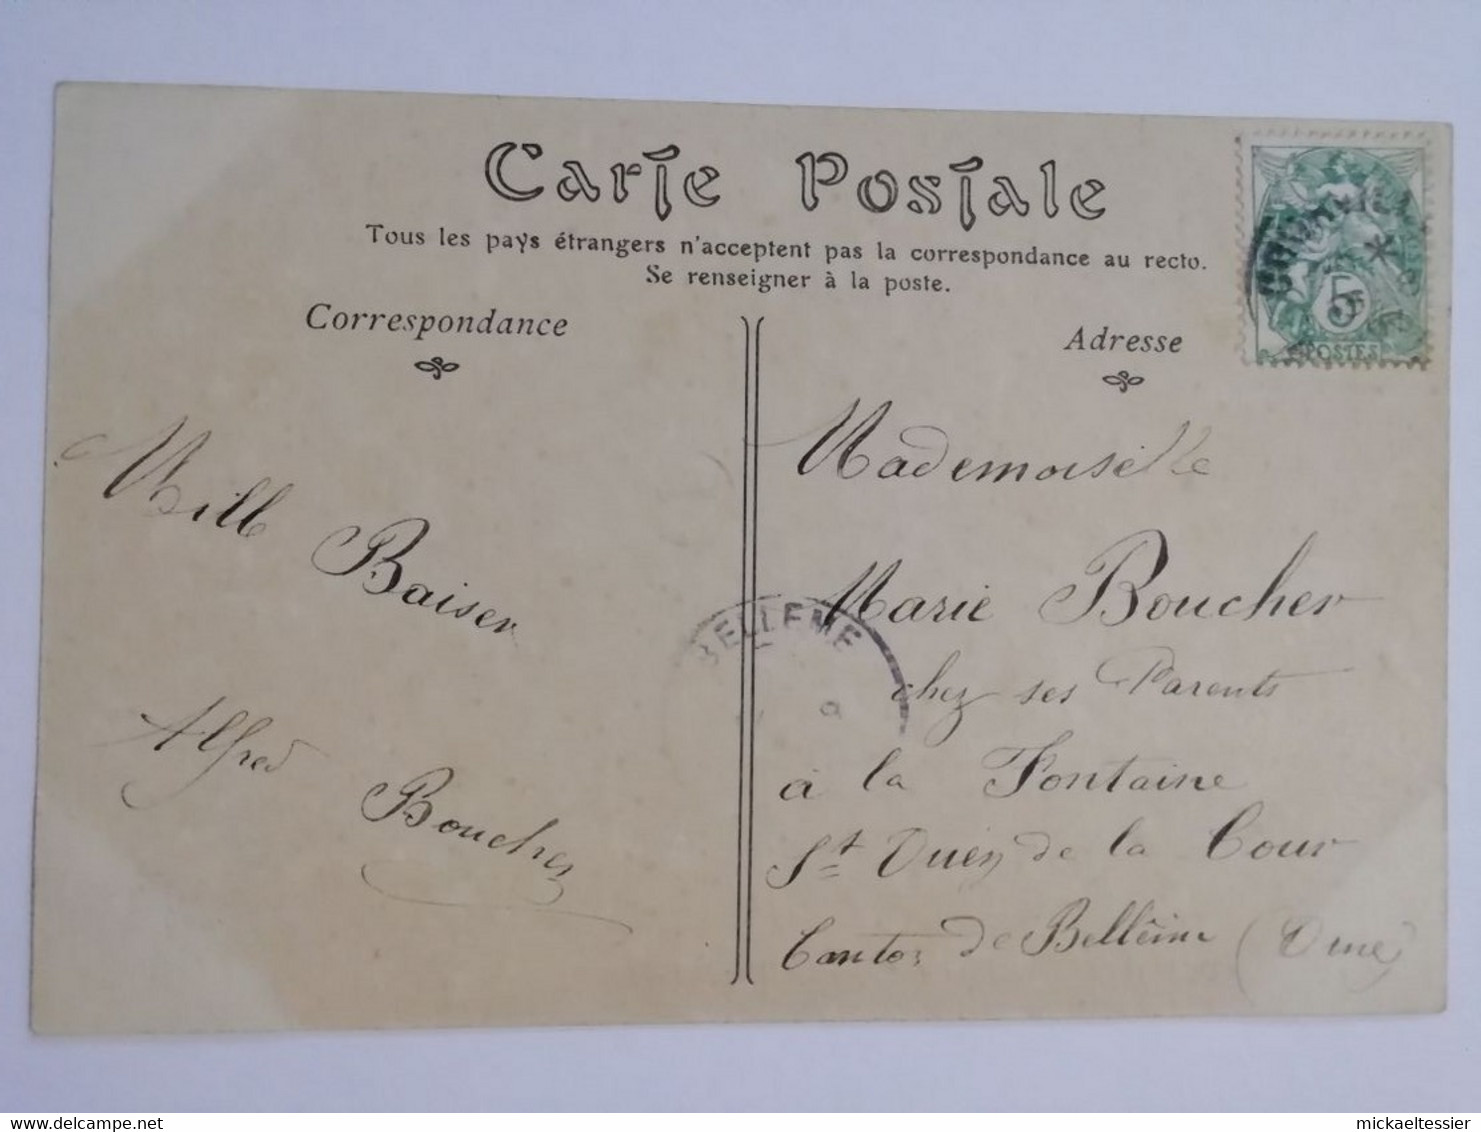 Carte Postale
Tous les pays étrangers n'acceptent pas la correspondance au recto.
Se renseigner à la poste.
Correspondance
Adresse
5
POSTES
Mill Baiser
Alfred Boucher
Mademoiselle
Marie Boucher
chez ses Parents
à la Fontaine
St Ouen de la Cour
Canton de Bellême (Orne)
BELLEME
delcampe.net
mickaeltessier